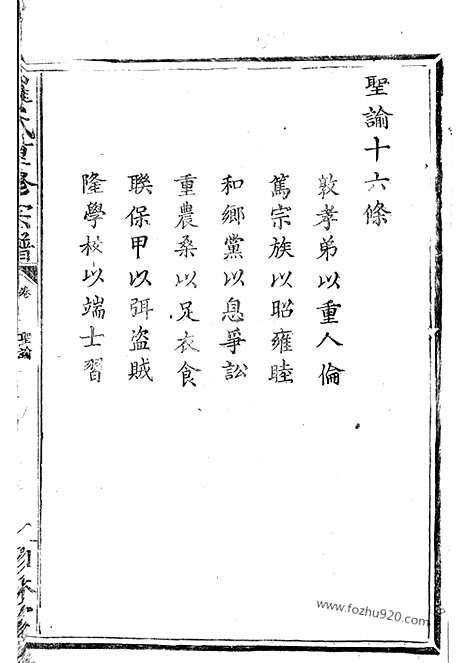 聖諭十六條
敦孝弟以重人倫
篤宗族以昭雍睦
和鄉黨以息爭訟
重農桑以足衣食
聯保甲以弭盜賊
隆學校以端士習
氏重修宗譜
卷
聖諭
www.fozhu920.com